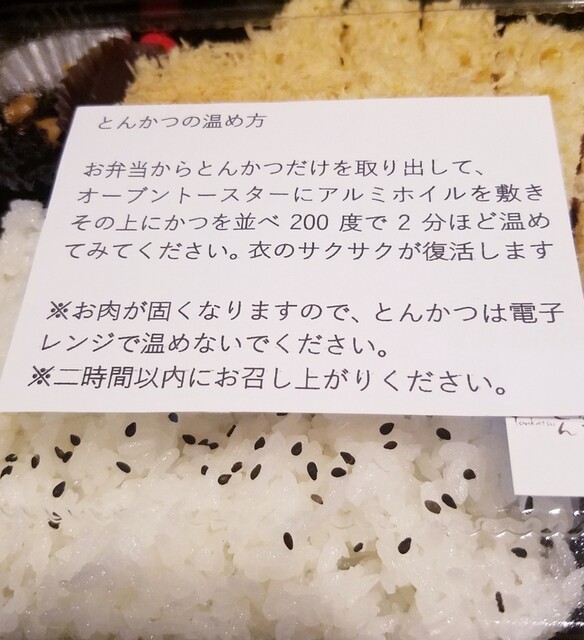 とんかつの温め方
お弁当からとんかつだけを取り出して、
オーブントースターにアルミホイルを敷き
その上にかつを並べ 200 度で 2 分ほど温め
てみてください。衣のサクサクが復活します
※お肉が固くなりますので、とんかつは電子
レンジで温めないでください。
※二時間以内にお召し上がりください。